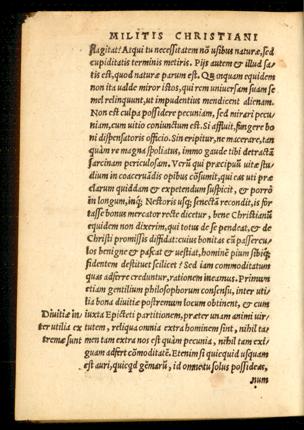 MILITIS CHRISTIANI
flagitat? Atqui tu necessitatem nõ usibus naturæ, sed
cupiditatis terminis metiris. Pijs autem & illud sa-
tis est, quod naturæ parum est. Quanquam equidem
non ita ualde miror istos, qui rem uniuersam suam se-
mel relinquunt, ut impudentius mendicent alienam.
Non est culpa possidere pecuniam, sed mirari pecu-
niam, cum uitio coniunctum est. Si affluit, fungere bo
ni dispensatoris officio. Sin eripitur, ne macerare, tan
quàm re magna spoliatus, immo gaude tibi detractã
sarcinam periculosam. Verũ qui præcipuũ uitæ stu-
dium in coaceruãdis opibus cõsumit, qui eas uti præ
clarum quiddam & expetendum suspicit, & porrò
in longum, inq; Nestoris usq; senecta recondit, is for
tasse bonus mercator recte dicetur, bene Christianũ
equidem non dixerim, qui totus de se pendeat, & de
Christi promissis diffidat: cuius bonitas eũ passercu-
los benigne & pascat & uestiat, hominẽ pium sibiq;
fidentem destituet scilicet? Sed iam commoditatum
quas adferre creduntur, rationem ineamus. Primum
etiam gentilium philosophorum consensu, inter uti-
lia bona diuitiæ postremum locum obtinent, & cum
Diuitiæ in iuxta Epicteti partitionem, præter unam animi uir-
ter utilia ex tutem, reliqua omnia extra hominem sint, nihil ta-
tremæ sunt men tam extra nos est quàm pecunia, nihil tam exi-
guam adfert cõmoditatẽ. Etenim si quicquid usquam
est auri, quicqd gẽmarũ, id omne tu solus possideas,
num